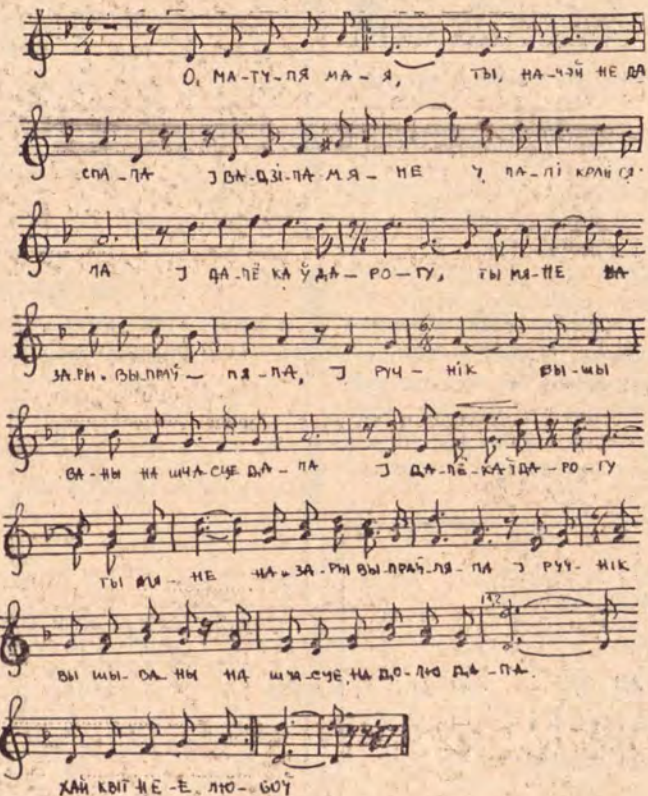 О, МА-ТУ-ЛЯ МА-Я, ТЫ, НА-ЧЭЙ НЕ ДА
СПА-ЛА І ВА-ДЗІ-ЛА МЯ-НЕ У ПА-ЛІ КРАЙ СЯ-
ЛА І ДА-ЛЁ КА Ў ДА-РО-ГУ, ТЫ МЯ-НЕ НА
ЗА.РЫ. ВЫ.ПРАЎ-ЛЯ-ЛА, І РУЧ-НІК ВЫ-ШЫ
ВА-НЫ НА ШЧА-СЦЕ ДА-ЛА І ДА-ЛЁ-КА Ў ДА-РО-ГУ
ТЫ МЯ-НЕ НА ЗА-РЫ ВЫ-ПРАЎ-ЛЯ-ЛА І РУЧ-НІК
ВЫ ШЫ-ВА-НЫ НА ШЧА-СЦЕ, НА ДО-ЛЮ ДА-ЛА.
ХАЙ КВІТ НЕ-Е ЛЮ-БОЎ